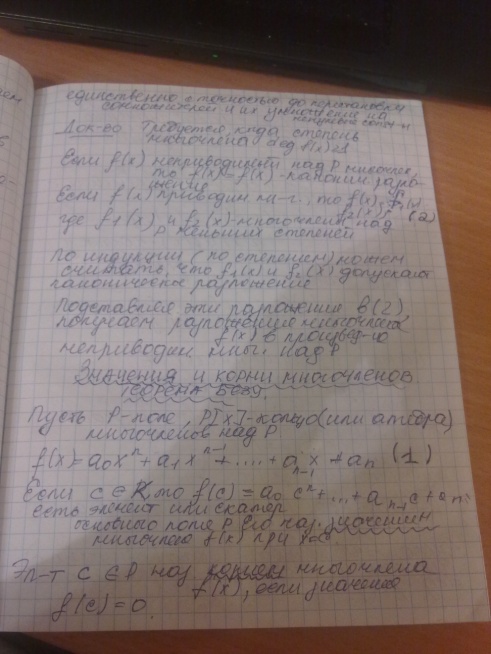 единственно с точностью до перестановки
сомножителей и их умножения на
ненулевые
Док-во Требуется, когда степень
многочлена deg f(x)≥1
Если f(x) неприводимый над P многочлен,
то f(x)=f(x) - канонич. разло-
жение
Если f(x) приводим мн-г., то f(x)=f₁(x)
f₂(x), (2)
где f₁(x) и f₂(x) - многочлены над
P меньших степеней
По индукции (по степеням) можем
считать, что f₁(x) и f₂(x) допускают
каноническое разложение
Подставляя эти разложения в (2),
получаем разложение многочлена
f(x) в произвед-ю
неприводим. мны. над P
Значения и корни многочленов.
Теорема Безу.
Пусть P-поле, P[x]-кольцо (или алгебра)
многочленов над P
f(x)=a₀xⁿ+a₁xⁿ⁻¹+....+aₙ₋₁x+aₙ (1)
Если c∈K, то f(c)=a₀cⁿ+...+aₙ₋₁c+aₙ
есть элемент или скаляр
основного поля P Его наз. значением
многочлена f(x) при x=c
Эл-т c∈P наз корнем многочлена
f(x), если значение
f(c)=0.